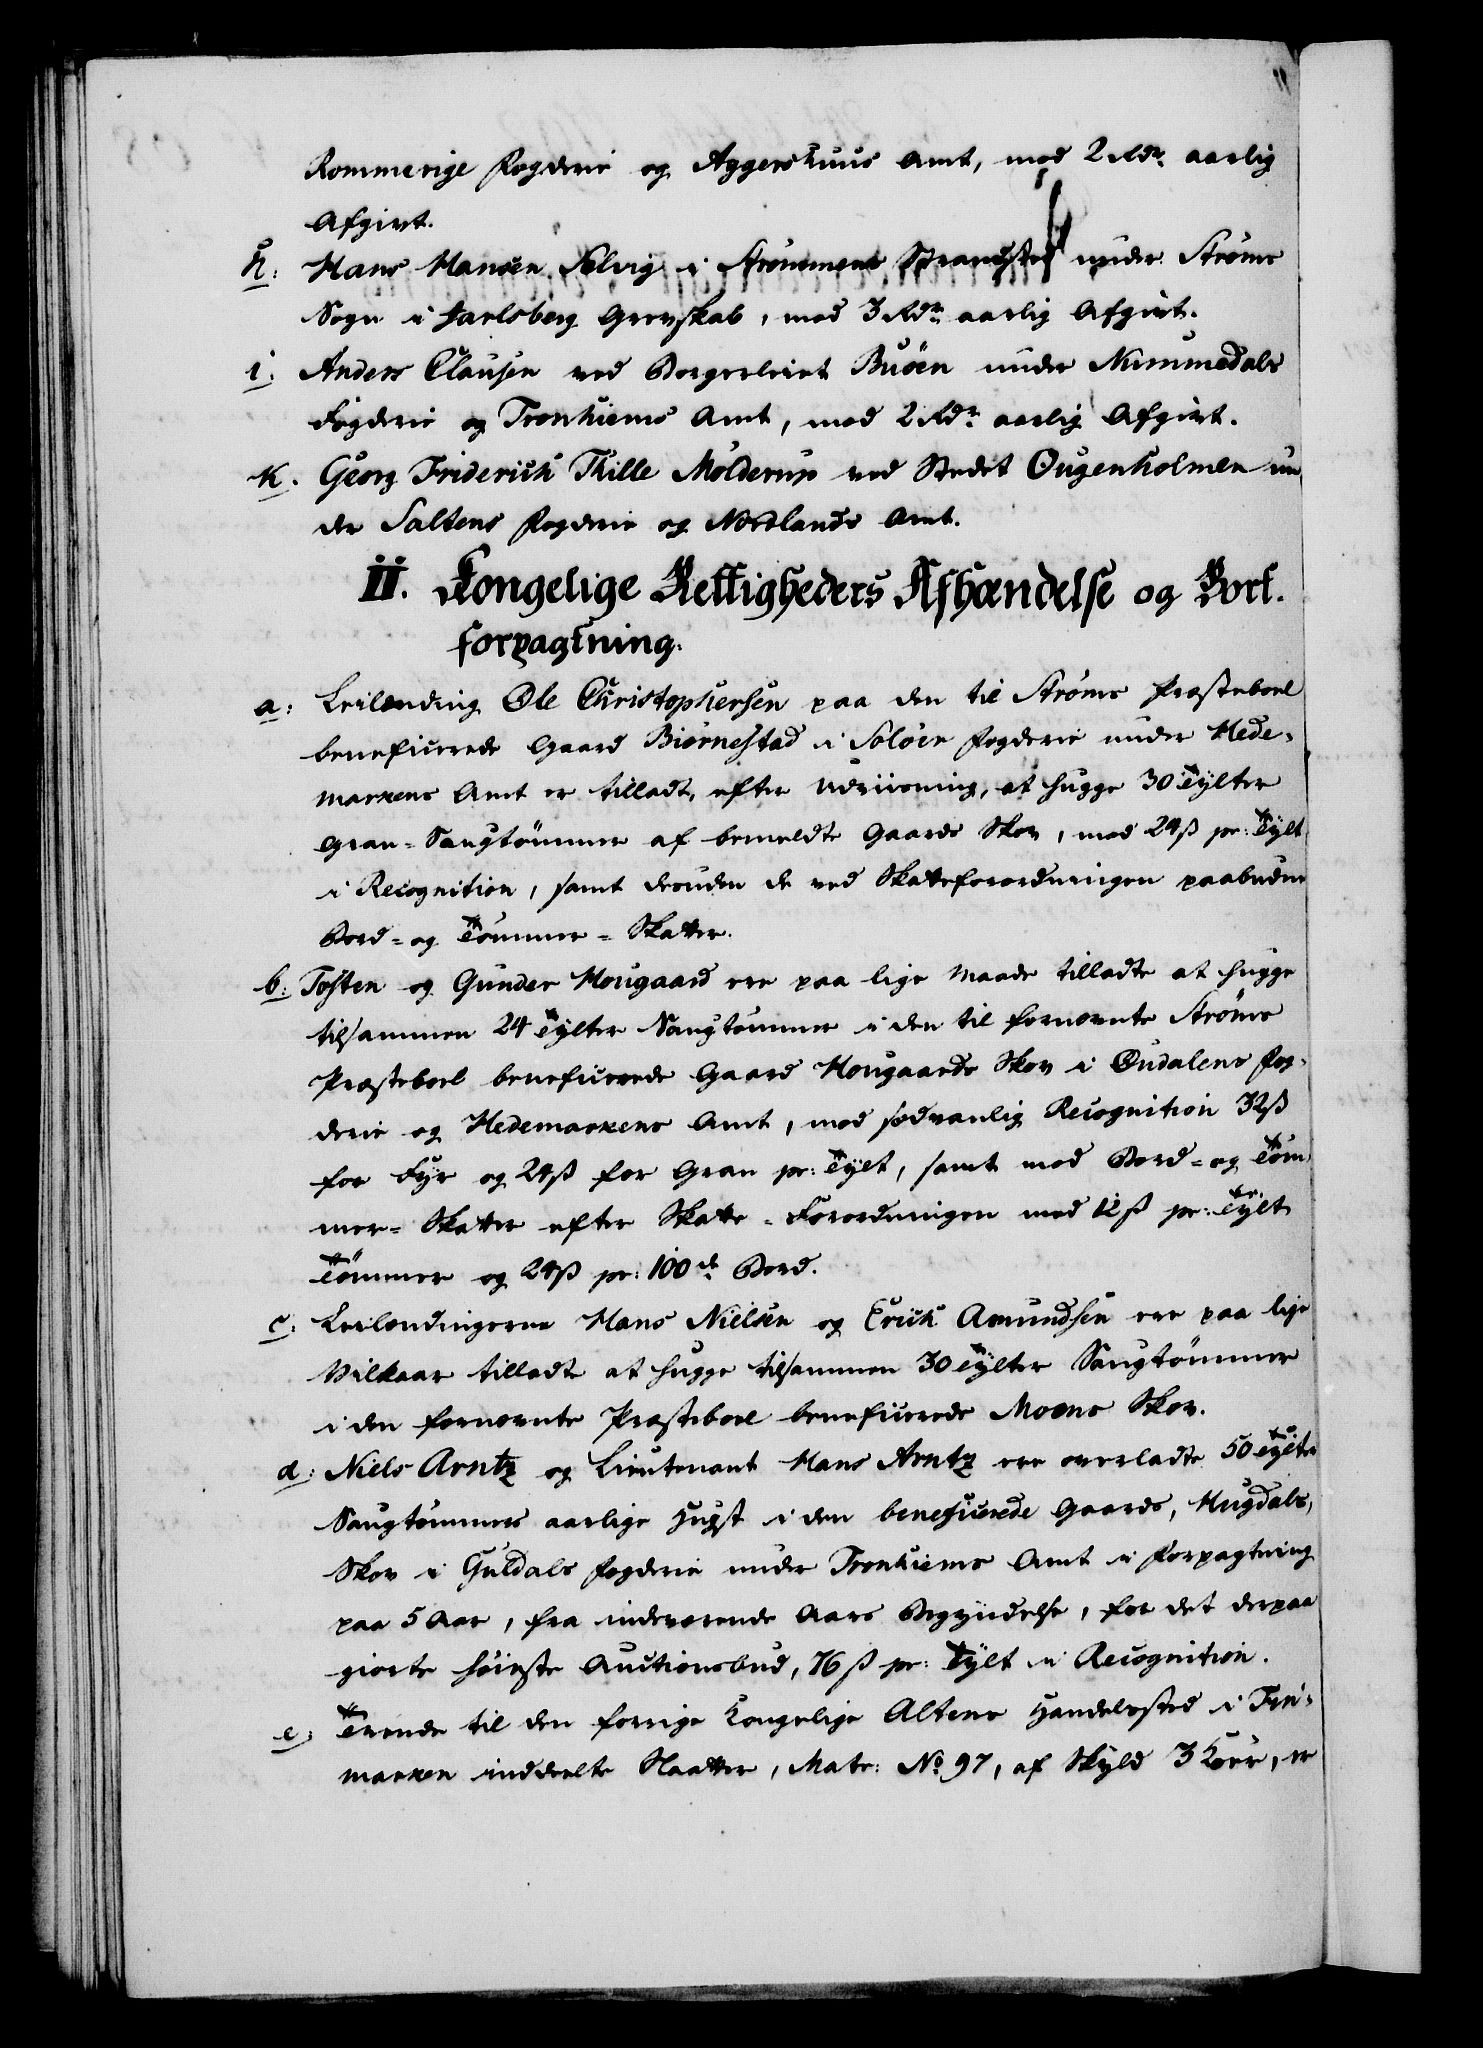 Rommerige Fogderie og Aggershuus Amt, mod 2 Rdr. aarlig
Afgivt.
h: Hans Hansen Solvig i Strömmens Strandsted under Ströms
Sogn i Jarlsberg Grevskab, mod 3 Rdr. aarlig Afgivt.
i. Anders Clausen ved Borgerleiet Buöen under Nummedals
Fogderie og Tronhiems Amt, mod 2 Rdr. aarlig Afgivt.
k. Georg Friderich Thille Mölderup ved Stedet Øugenholmen un
der Saltens Fogderie og Nordlands Amt.
ii. Kongelige Rettigheders Afhændelse og Bort-
forpagtning.
a: Leilænding Ole Christophersen paa den til Ströms Præsteboel
beneficerede Gaard Biörnestad i Solöer Fogderie under Hede-
markens Amt er tilladt, efter Udviisning, at hugge 30 Tylter
Gran-Saugtömmer af bemeldte Gaards Skov, mod 24 ß pr: Tylt
i Recognition, samt desuden de ved Skatteforordningen paabudne
Bord- og Tömmer-Skatter.
b: Tosten og Gunder Hougaard ere paa lige Maade tilladte at hugge
tilsammen 24 Tylter Saugtömmer i den til fornævnte Ströms
Præsteboel beneficerede Gaard Hougaards Skov i Øudalens Fog-
derie og Hedemarkens Amt, mod sædvanlig Recognition 32 ß
for Fyr og 24 ß for Gran pr: Tylt, samt mod Bord- og Töm
mer-Skatter efter Skatte-Forordningen med 12 ß pr: Tylt
Tömmer og 24 ß pr: 100de Bord.
c: Leilændingerne Hans Nielsen og Erich Amundsen ere paa lige
Vilkaar tilladte at hugge tilsammen 30 Tylter Saugtömmer
i den fornævnte Præsteboel beneficerede Moens Skov.
d: Niels Arntz og Lieutenant Hans Arntz ere overladte 50 Tylter
Saugtömmers aarlige Hugst i den beneficerede Gaards, Hugdals,
Skov i Guldals Fogderie under Tronhiems Amt i Forpagtning
paa 5 Aar, fra indeværende Aars Begyndelse, for det derpaa
giorte höieste Auctionsbud, 76 ß pr: Tylt i Recognition.
e: Trende til den forrige Kongelige Altens Handelssted i Fin-
marken inddeelte Slaatter, Matr: No. 97, af Skyld 3 Köer, er